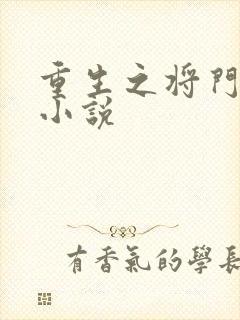 重生之将門
小說
有香氣的學長